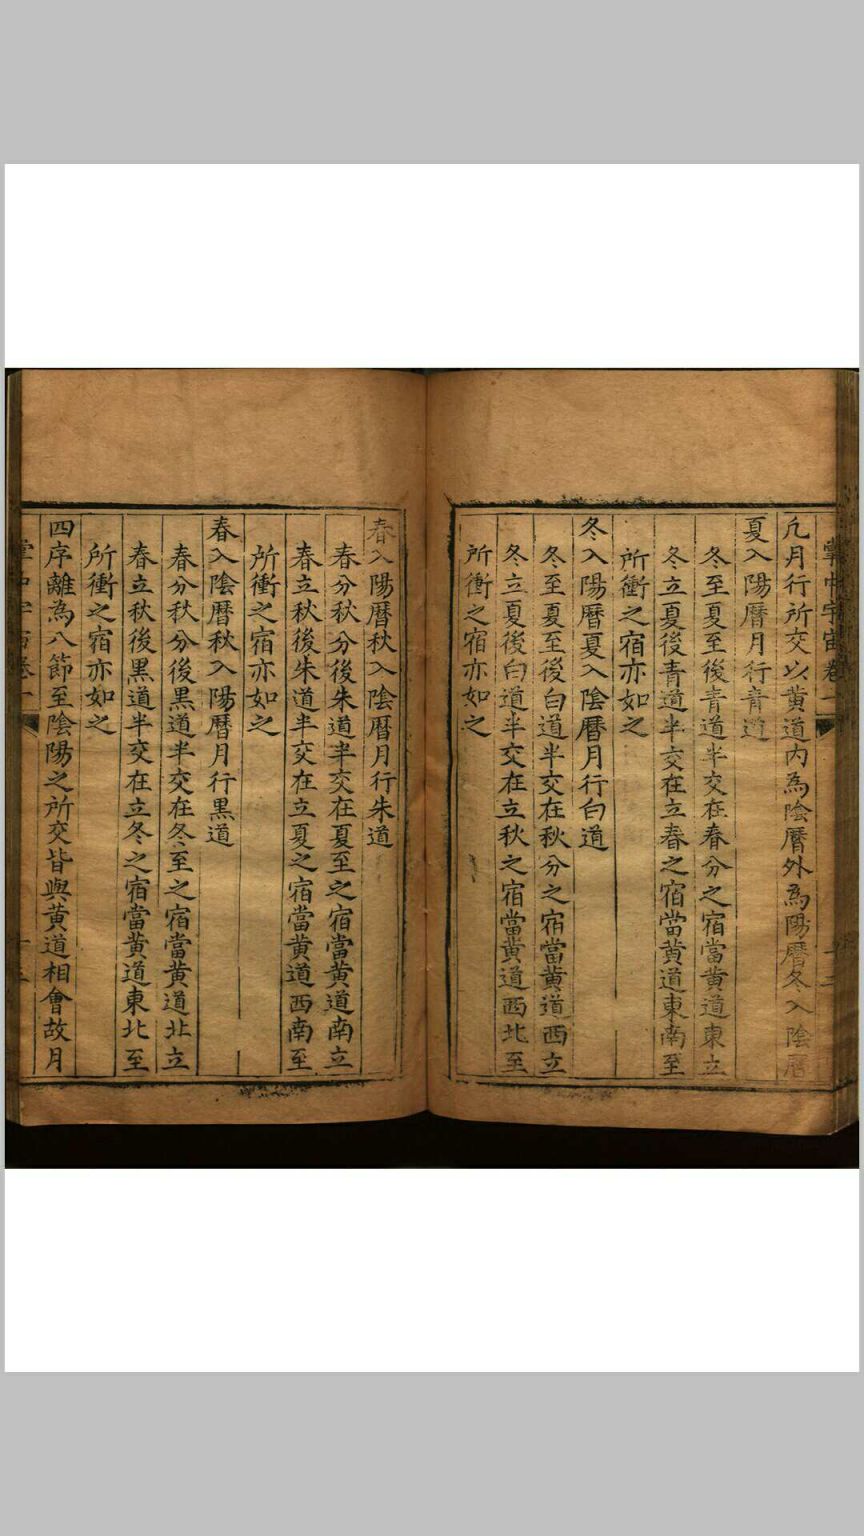 掌中宇宙卷一
十三
凢月行所交以黄道内為陰曆外為陽曆冬入陰曆
夏入陽曆月行青道
冬至夏至後青道半交在春分之宿當黄道東立
冬立夏後青道半交在立春之宿當黄道東南至
所衝之宿亦如之
冬入陽曆夏入陰曆月行白道
冬至夏至後白道半交在秋分之宿當黄道西立
冬立夏後白道半交在立秋之宿當黄道西北至
所衝之宿亦如之
春入陽曆秋入陰曆月行朱道
春分秋分後朱道半交在夏至之宿當黄道南立
春立秋後朱道半交在立夏之宿當黄道西南至
所衝之宿亦如之
春入陰曆秋入陽曆月行黒道
春分秋分後黒道半交在冬至之宿當黄道北立
春立秋後黒道半交在立冬之宿當黄道東北至
所衝之宿亦如之
四序離為八節至陰陽之所交皆與黄道相會故月